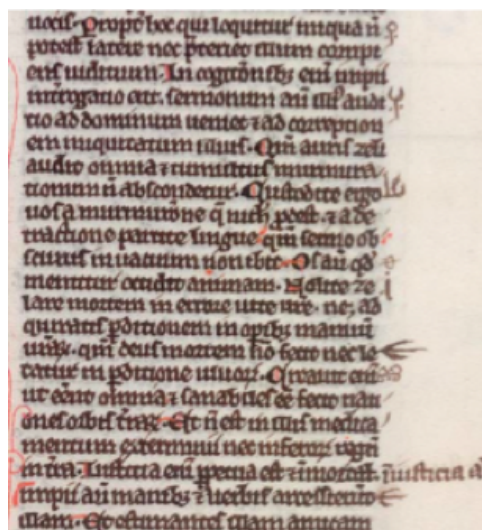 uocis. Propt hoc qui loquitur iniqua n̄
potest latere nec p̄teriet illum corripi
ens iudicium. In cogitōnibꝫ enī impii
interrogatio erit. sermonum aū illiꝰ audi
tio ad dominum ueniet ⁊ ad correption
em iniquitatum illius. Qm̄ auris zeli
audit omnia ⁊ tumultus murmura
tionum n̄ abscondetur. Custodite ergo
uos a murmurōne q̄ nich̄ pōest. ⁊ a de
tractione parcite lingue. qm̄ sermo ob
scurus in uacuum non ibit. Os aū qd̄
mentitur occidit animam. Nolite ze
lare mortem in errore uite ur̄e. neꝫ ad
quiratis ꝑditionem in opibꝫ manuū
ur̄aꝝ. qm̄ deus mortem nō fecit nec le
tatur in ꝑditione uiuoꝝ. Creauit enī
ut eēnt omnia ⁊ sanabiles fecit nati
ones orbis t̄raꝝ. Et n̄ est in illis medica
mentum exterminii nec inferoꝝ regnū
in t̄ra. Iusticia enī ꝑpetua est ⁊ inmortał. iniusticia
impii aū manibꝫ ⁊ uerbis arcessierūt
illam. Et estimantes illam amicam